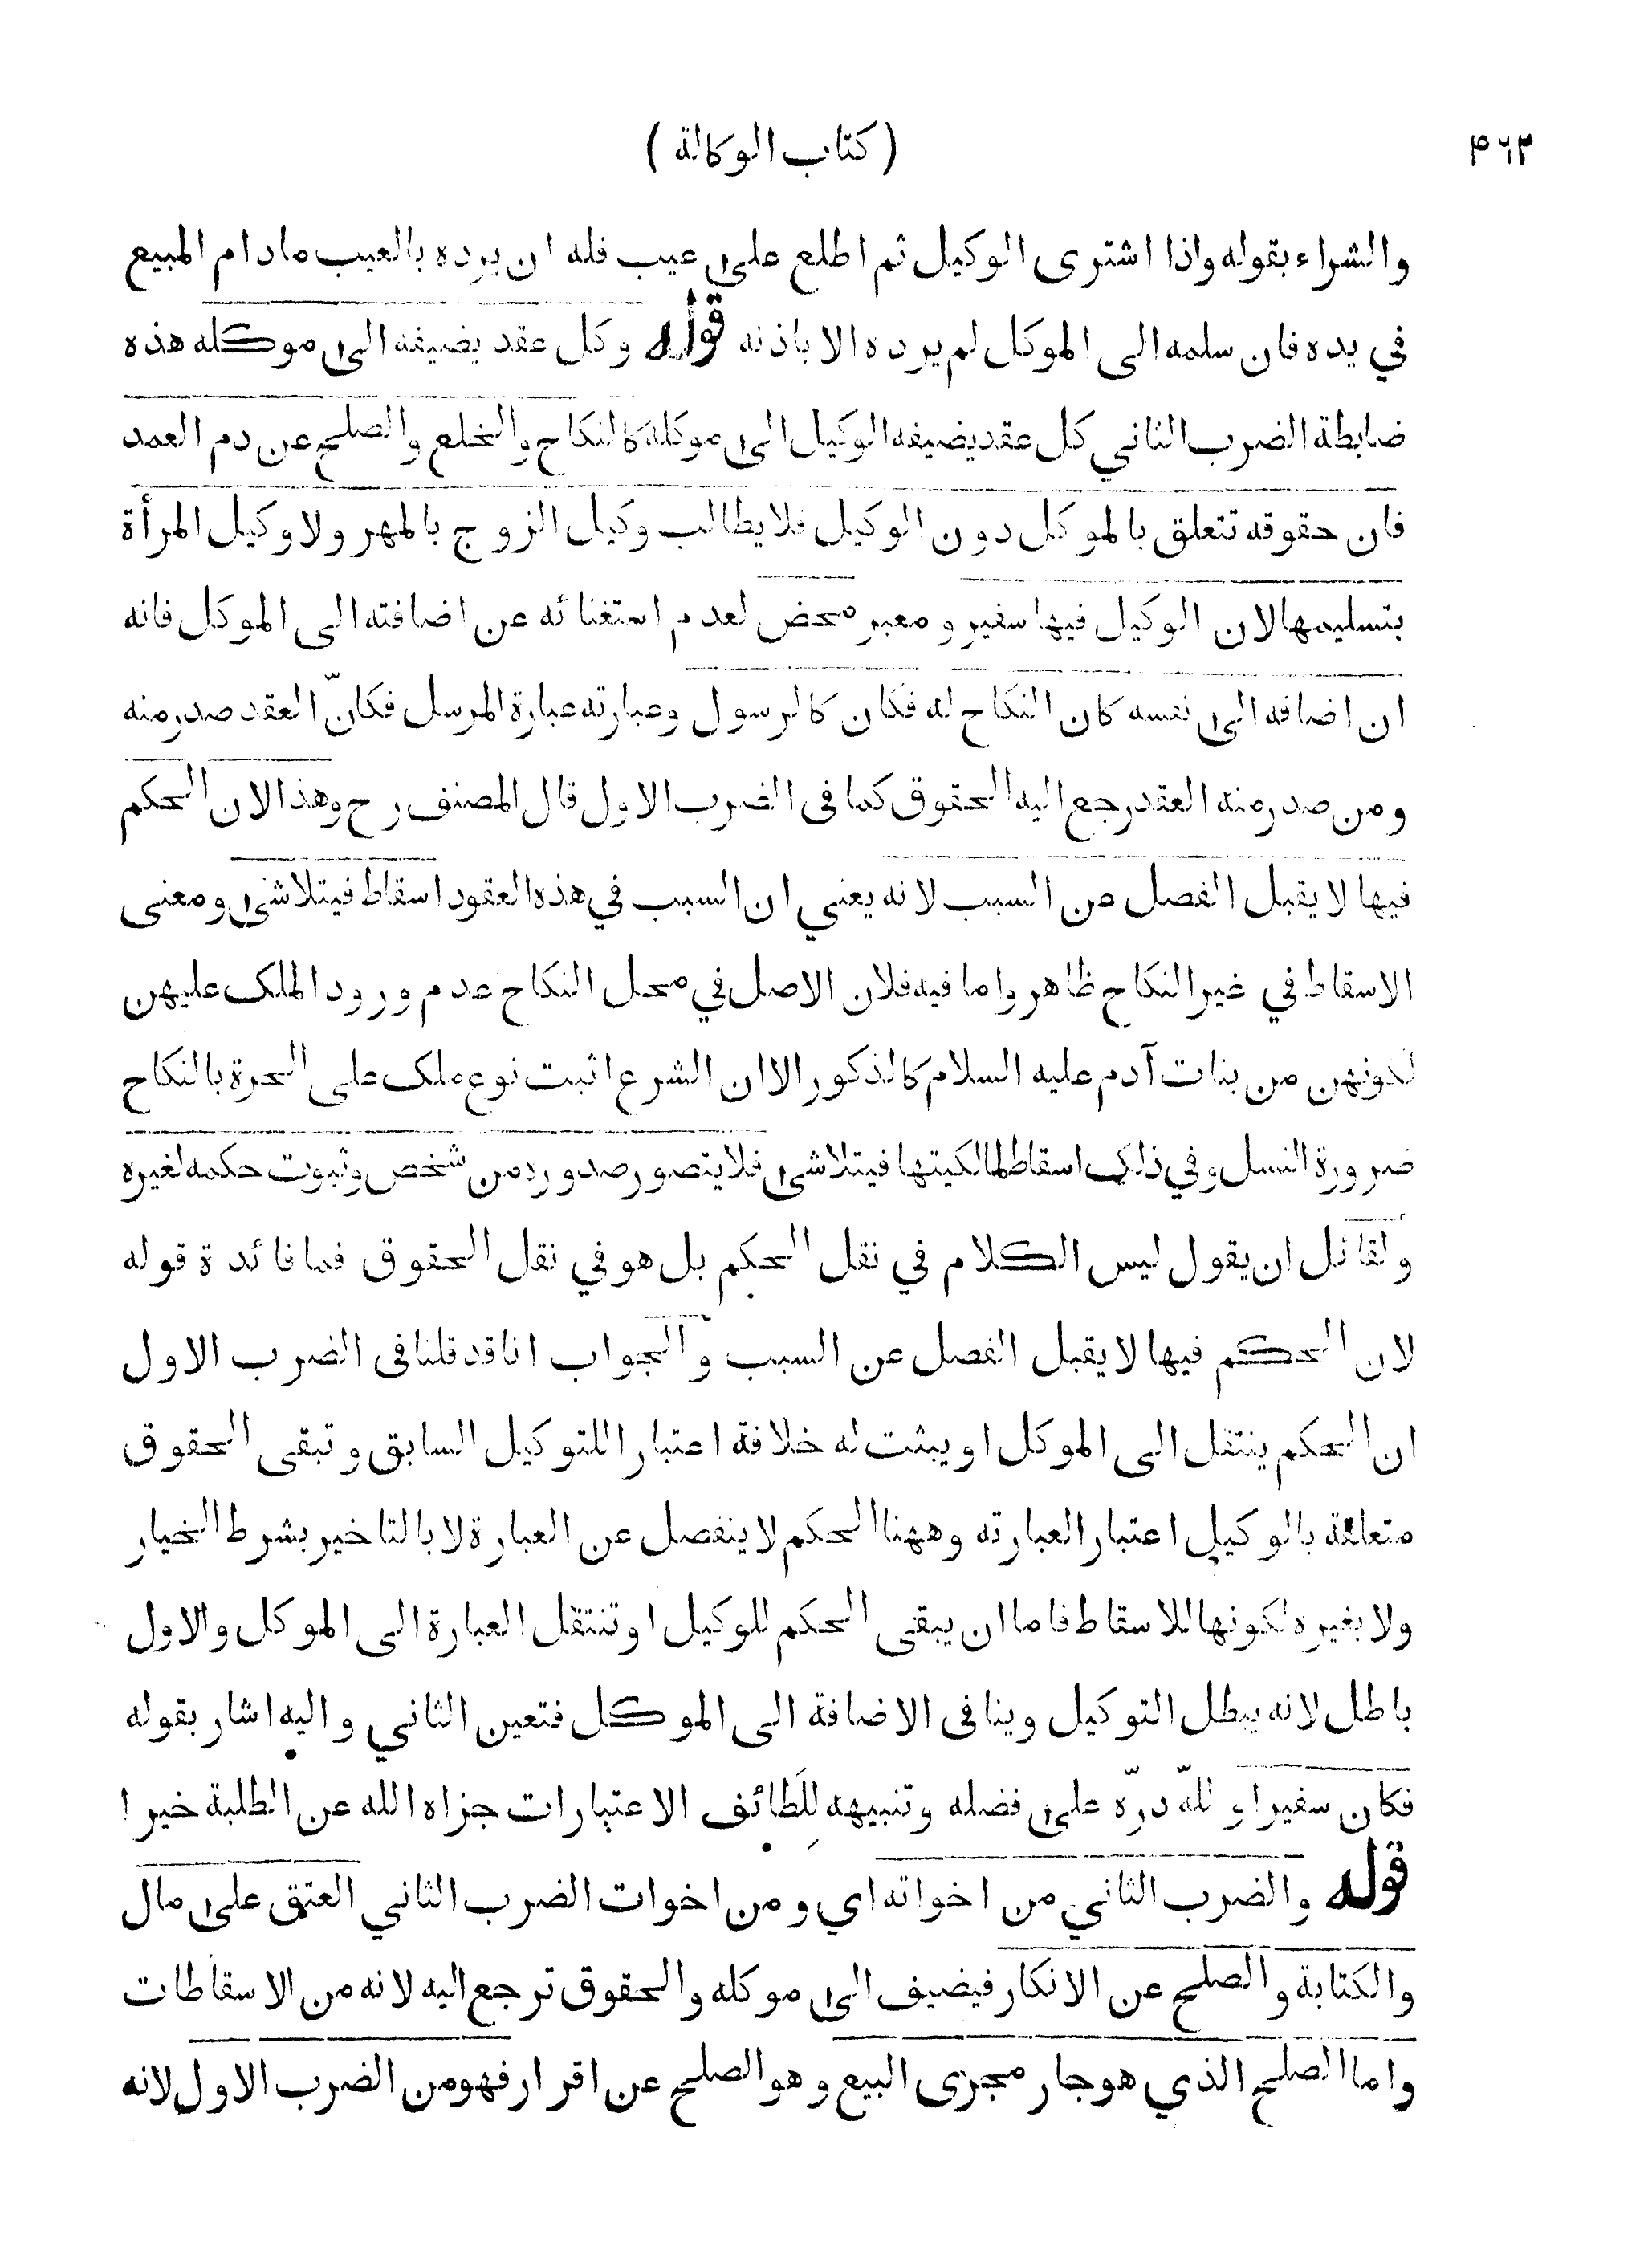 ( كتاب الوكالة )
۴۶۲
والشراء بقوله واذا اشترى الوكيل ثم اطلع على عيب فله ان يرده بالعيب مادام المبيع
في يده فان سلمه الى الموكل لم يرده الا باذنه قوله وكل عقد يضيفه الى موكله هذه
ضابطة الضرب الثاني كل عقد يضيفه الوكيل الى موكله كالنكاح والخلع والصلح عن دم العمد
فان حقوقه تتعلق بالموكل دون الوكيل فلا يطالب وكيل الزوج بالمهر ولا وكيل المرأة
بتسليمها لان الوكيل فيها سفير ومعبر محض لعدم استغنائه عن اضافته الى الموكل فانه
ان اضافه الى نفسه كان النكاح له فكان كالرسول وعبارته عبارة المرسل فكانّ العقد صدر منه
ومن صدر منه العقد رجع اليه الحقوق كما فى الضرب الاول قال المصنف رح وهذا لان الحكم
فيها لا يقبل الفصل عن السبب لانه يعني ان السبب في هذه العقود اسقاط فيتلاشى ومعنى
الاسقاط في غير النكاح ظاهر واما فيه فلان الاصل في محل النكاح عدم ورود الملك عليهن
لكونهن من بنات آدم عليه السلام كالذكور الا ان الشرع اثبت نوع ملك على الحرة بالنكاح
ضرورة النسل وفي ذلك اسقاط لمالكيتها فيتلاشى فلا يتصور صدوره من شخص وثبوت حكمه لغيره
ولقائل ان يقول ليس الكلام في نقل الحكم بل هو في نقل الحقوق فما فائدة قوله
لان الحكم فيها لا يقبل الفصل عن السبب والجواب انا قد قلنا فى الضرب الاول
ان الحكم ينتقل الى الموكل او يثبت له خلافة اعتبارا للتوكيل السابق وتبقى الحقوق
متعلقة بالوكيل اعتبارا لعبارته وههنا الحكم لا ينفصل عن العبارة لا بالتاخير بشرط الخيار
ولا بغيره لكونها للاسقاط فاما ان يبقى الحكم للوكيل او تنتقل العبارة الى الموكل والاول
باطل لانه يبطل التوكيل وينافى الاضافة الى الموكل فتعين الثاني واليه اشار بقوله
فكان سفيرا وللّه درّه على فضله وتنبيهه لِلَطائف الاعتبارات جزاه الله عن الطلبة خيرا
قوله والضرب الثاني من اخواته اي ومن اخوات الضرب الثاني العتق على مال
والكتابة والصلح عن الانكار فيضيف الى موكله والحقوق ترجع اليه لانه من الاسقاطات
واما الصلح الذي هو جار مجرى البيع وهو الصلح عن اقرار فهو من الضرب الاول لانه